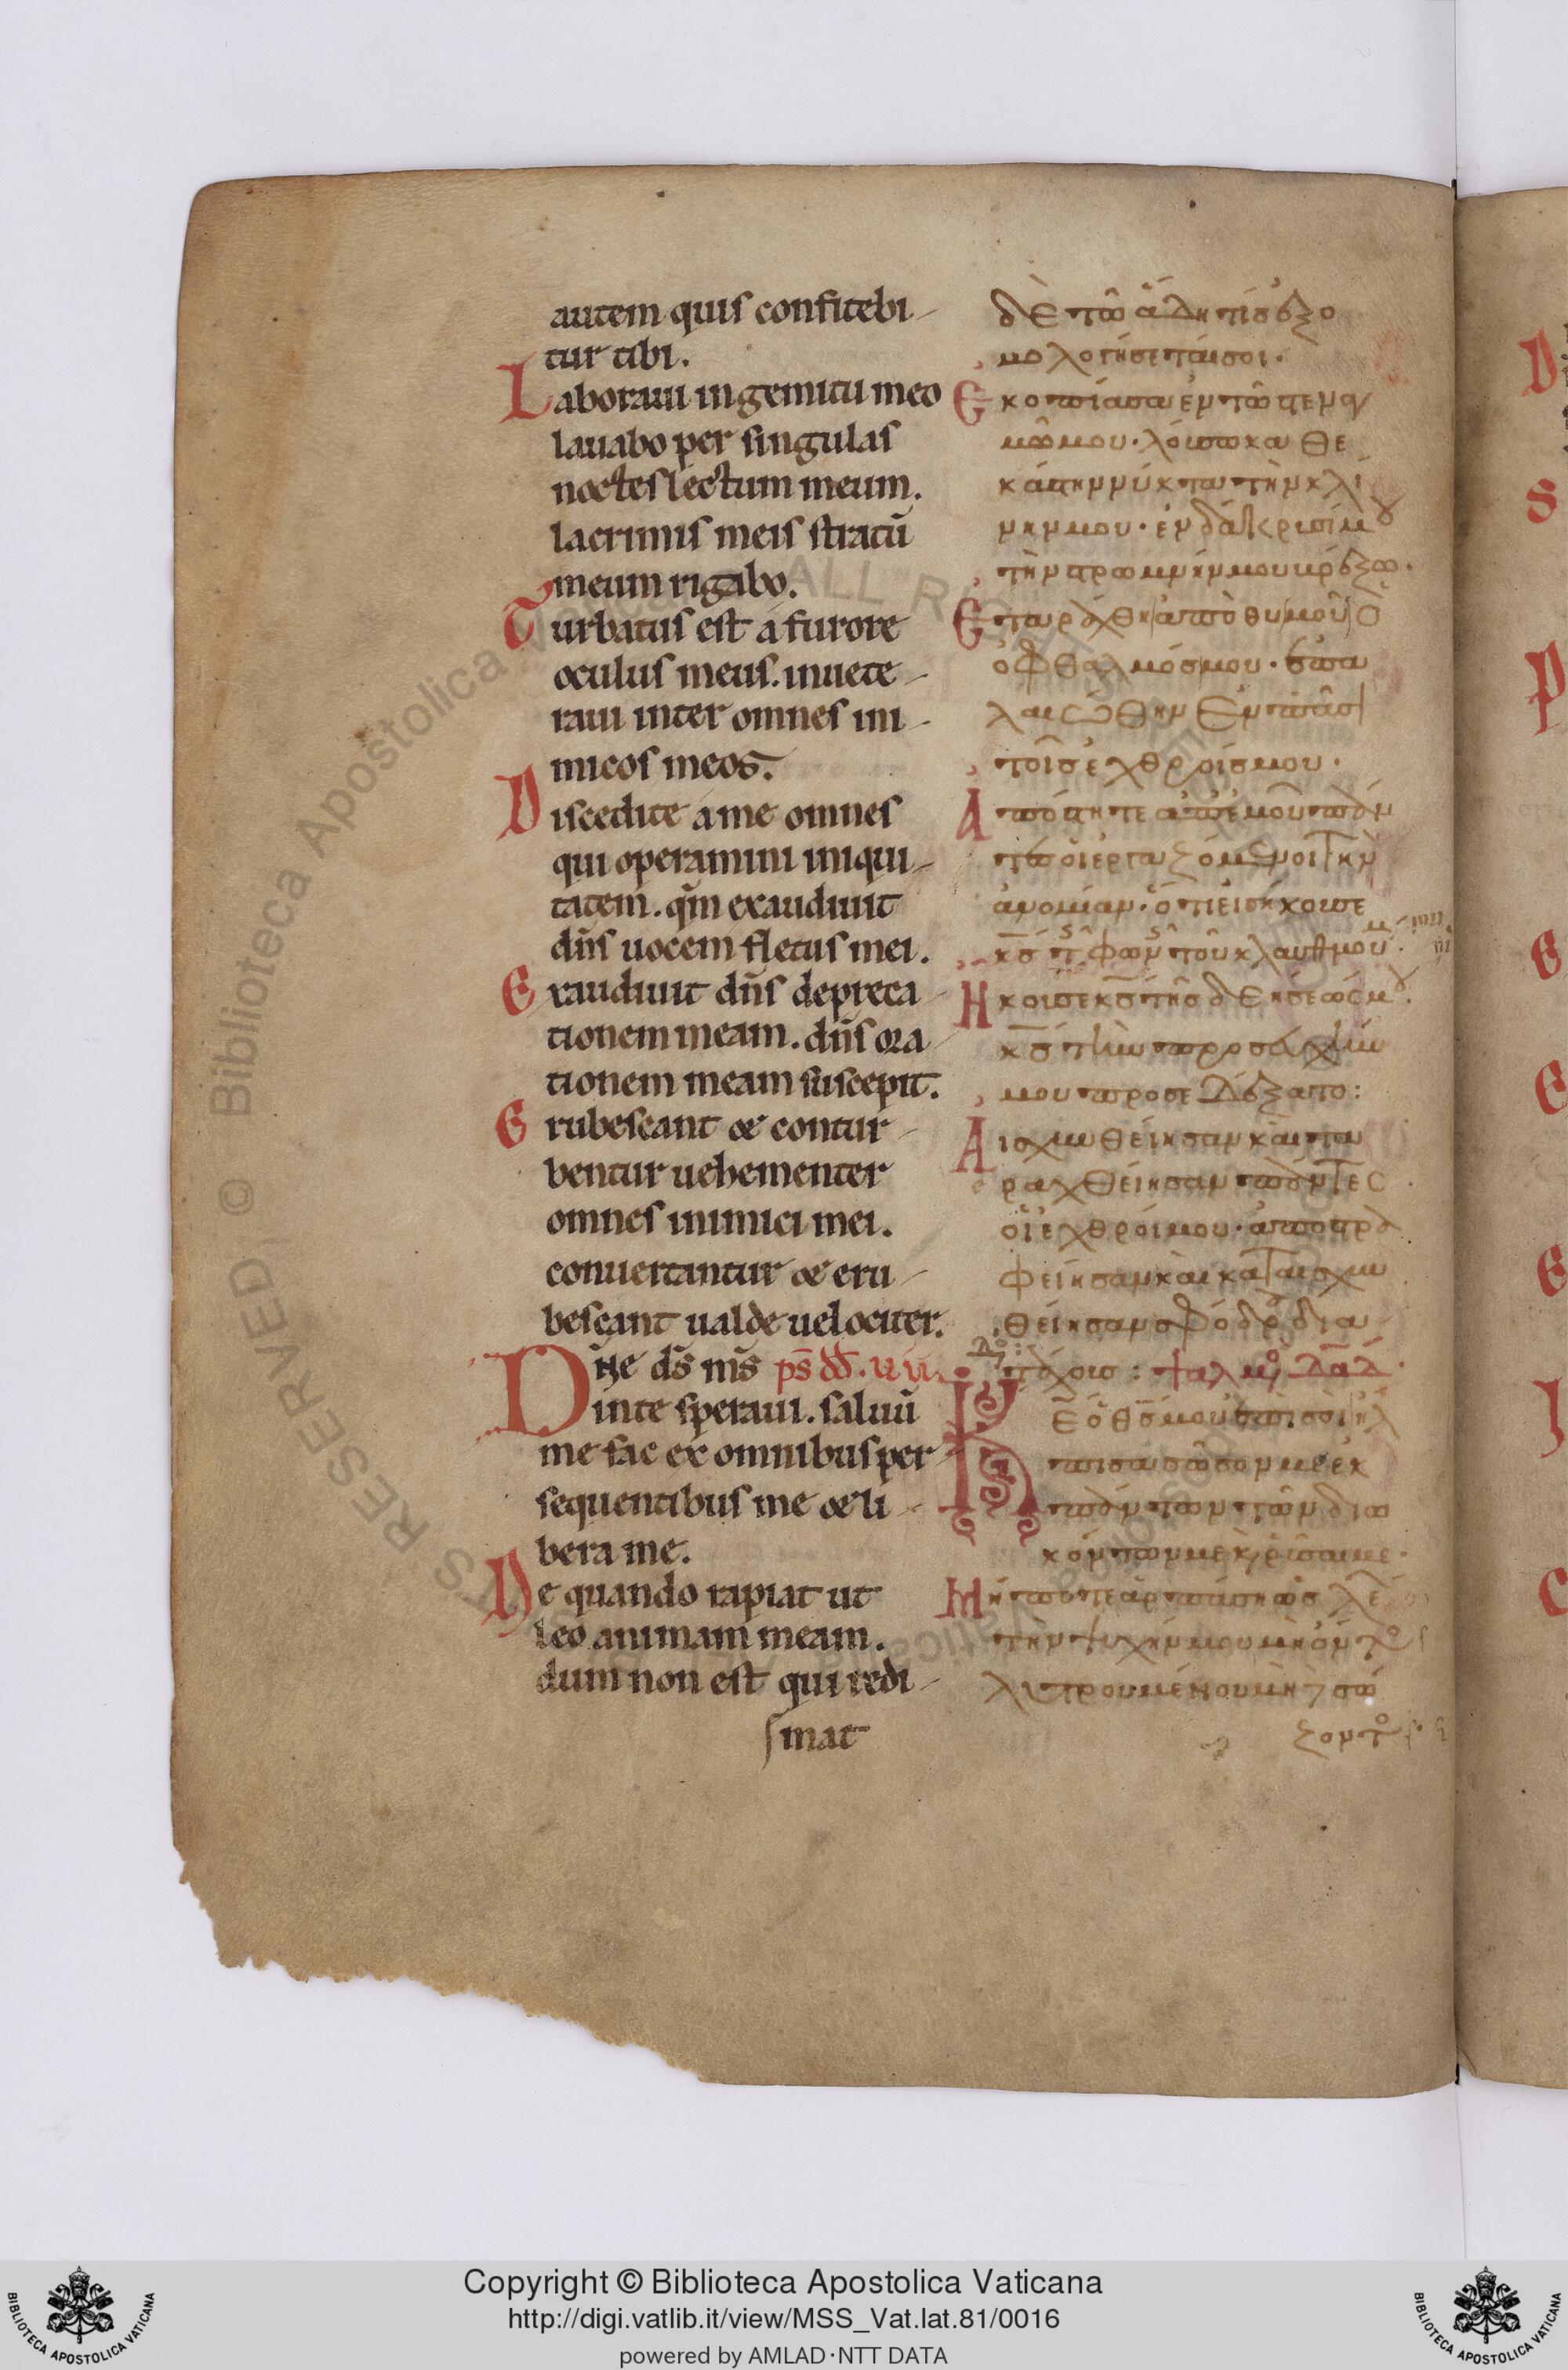 autem quis confitebi-
tur tibi.
Laboraui in gemitu meo
lauabo per singulas
noctes lectum meum.
lacrimis meis stratū
meum rigabo.
Turbatus est a furore
oculus meus. inuete-
raui inter omnes ini-
micos meos.
Discedite a me omnes
qui operamini iniqui-
tatem. qm̄ exaudiuit
dn̄s uocem fletus mei.
Exaudiuit dn̄s depreca-
tionem meam. dn̄s ora-
tionem meam suscepit.
Erubescant & contur-
bentur uehementer
omnes inimici mei.
conuertantur & eru-
bescant ualde uelociter.
Dn̄e ds̄ ms̄ ps̄ dd̄. uii.
in te speraui. saluū
me fac ex omnibus per-
sequentibus me & li-
bera me.
Ne quando rapiat ut
leo animam meam.
dum non est qui redi-
mat
δὲ τῶ ἅδη τίσ ἐξο
μολογήσεταί σοι.
Εκοπίασα ἐν τῶ
μῶ μου. λόισω καθε
κάστην νύκτα τὴν κλί
νην μου. ἐν δάκρισί μου
τὴν στρωμνήν μου βρέξω.
Εταράχθη ἀπὸ θυμοῦ ὁ
ὀφθαλμόσ μου. ἐπα
λαιώθην ἐν πᾶσι
τοῖσ ἐχθροίσ μου.
Απόστητε ἀπ' ἐμοῦ πάν
τεσ οἱ ἐργαζόμενοι τὴν
ἀνομίαν. ὅτι εἰσήκοισε
κ̄σ τῆς φωνῆς τοῦ κλαυθμοῦ
Ηκοισε κ̄σ τῆσ δεήσεώσ μου.
κ̄σ τὴν προσευχήν
μου προσεδέξατο:
Αισχυνθείησαν καὶ τα
ραχθείησαν πάντες
οἱ ἐχθροί μου. ἀποστρα
φείησαν καὶ καταισχυν
θείησαν σφόδρα διὰ
τάχοισ: ψαλμὸς δᾱδ.
Κ̄Ε ὁ θ̄σ μου ἐπὶ σοὶ ἤλ
πισα σῶσόν με ἐκ
πάντων τῶν διω
κόντων με κ̀ ῥῖσαι με.
Μήποτε ἁρπάση ὡσ λέ
τὴν ψυχήν μου μὴ ὄντος
λιτρουμένου μηδὲ σώ
ζοντος
© Biblioteca Apostolica Vaticana ALL RIGHTS RESERVED
Copyright © Biblioteca Apostolica Vaticana
http://digi.vatlib.it/view/MSS_Vat.lat.81/0016
powered by AMLAD·NTT DATA
BIBLIOTECA APOSTOLICA VATICANA
BIBLIOTECA APOSTOLICA VATICANA